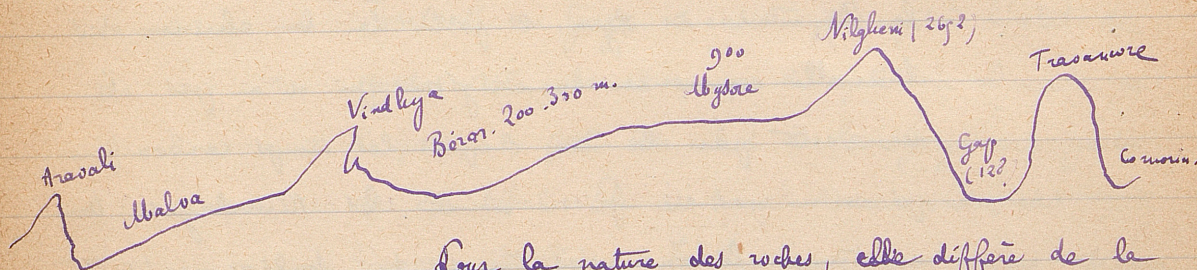 Aravali
Malva
Vindhya
Bérar. 200-300 m.
900
Mysore
Nilgheri (2652)
Gap
(128
Travancore
Comorin.
Pour la nature des roches, elle diffère de la